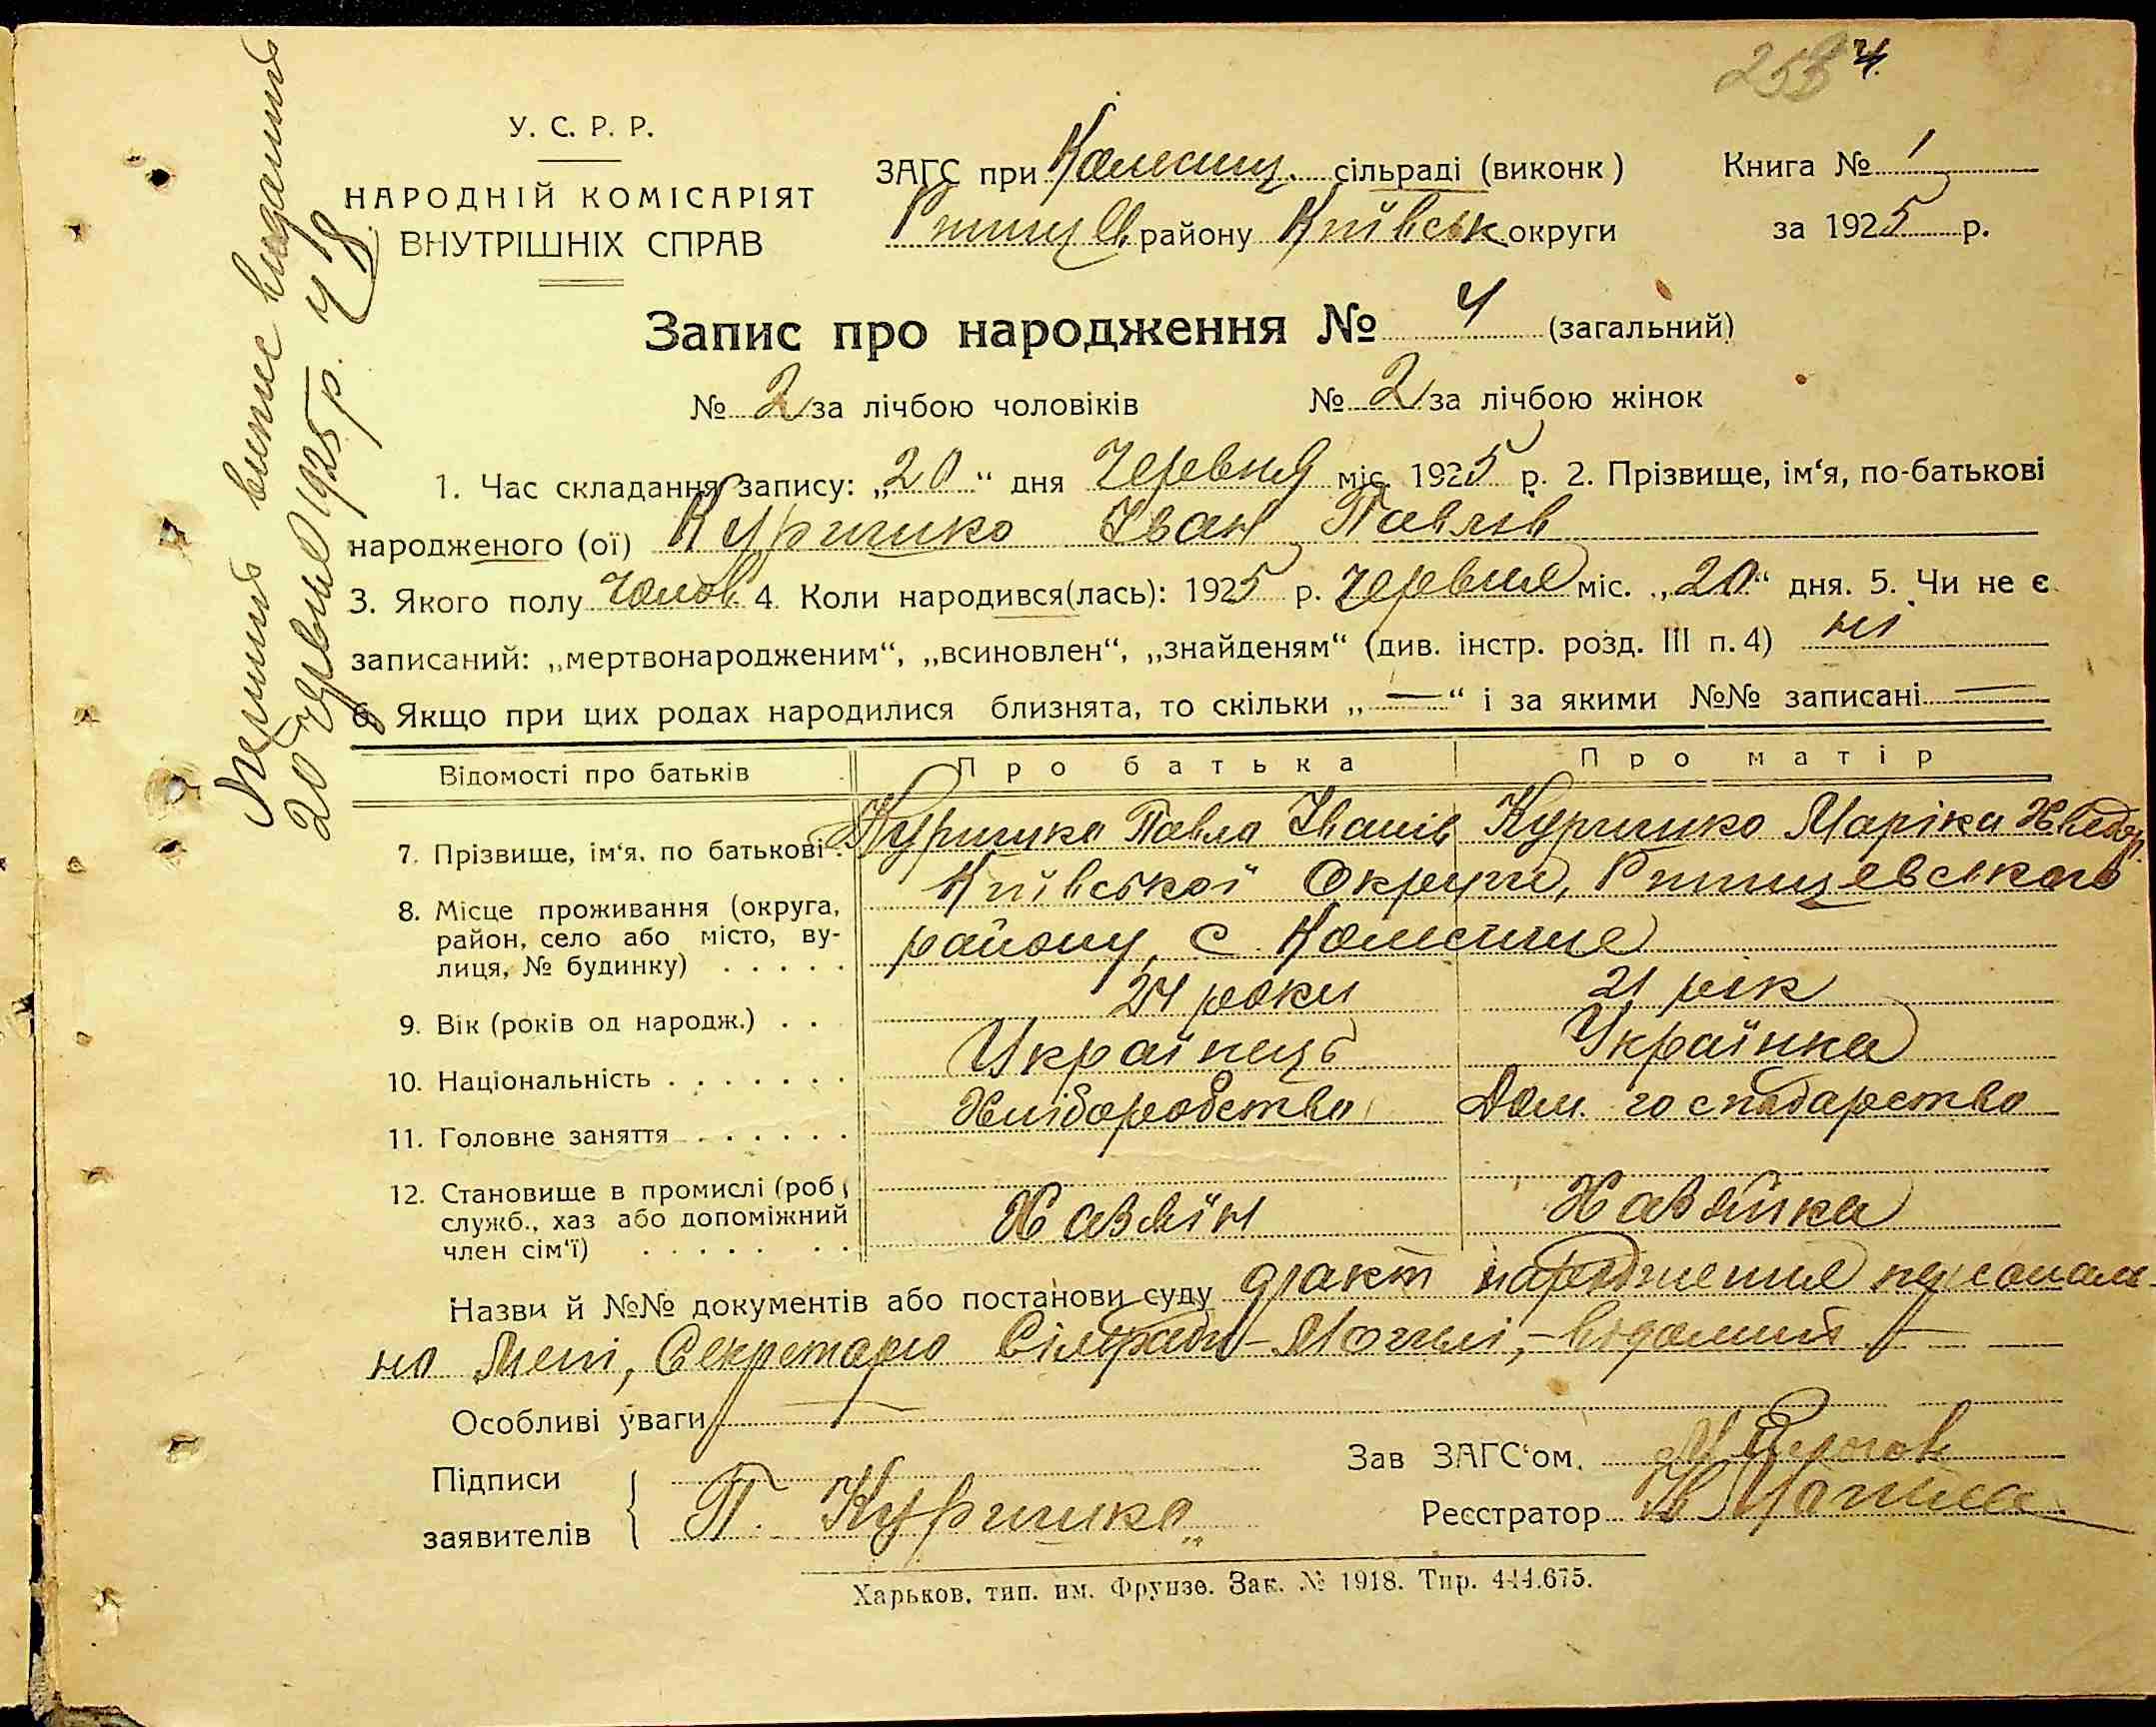 253 4
У. С. Р. Р.
НАРОДНІЙ КОМІСАРІЯТ
ВНУТРІШНІХ СПРАВ
ЗАГС при сільраді (виконк)
району Київськ округи
Книга № 1
за 1925 р.
Запис про народження № 4 (загальний)
№ 2 за лічбою чоловіків № 2 за лічбою жінок
1. Час складання запису: „20" дня Червня міс. 1925 р. 2. Прізвище, ім'я, по-батькові
народженого (ої) Куришко Іван Павлів
3. Якого полу Чолов 4. Коли народився(лась): 1925 р. Червня міс. „20" дня. 5. Чи не є
записаний: „мертвонародженим", „всиновлен", „знайденям" (див. інстр. розд. III п. 4) ні
6. Якщо при цих родах народилися близнята, то скільки „—" і за якими №№ записані —
Відомості про батьків Про батька Про матір
7. Прізвище, ім'я, по батькові Куришко Павло Іванів Куришко Маріка
8. Місце проживання (округа, район, село або місто, вулиця, № будинку) Київської Округи, Ртищевського
району, с.
9. Вік (років од народж.) 24 роки 21 рік
10. Національність Українець Українка
11. Головне заняття Хліборобство Дом. господарство
12. Становище в промислі (роб., служб., хаз або допоміжний член сім'ї) Хазяїн Хазяйка
Назви й №№ документів або постанови суду факт народження персональ-
но мені, Секретарю Сільради - Могилі, - відомий
Особливі уваги —
Підписи заявителів П. Куришко
Зав ЗАГС'ом.
Реєстратор Могила
Харьков, тип. им. Фрунзе. Зак. № 1918. Тир. 444.675.
Перший випис виданий
20 Червня 1925 р. Ч 18